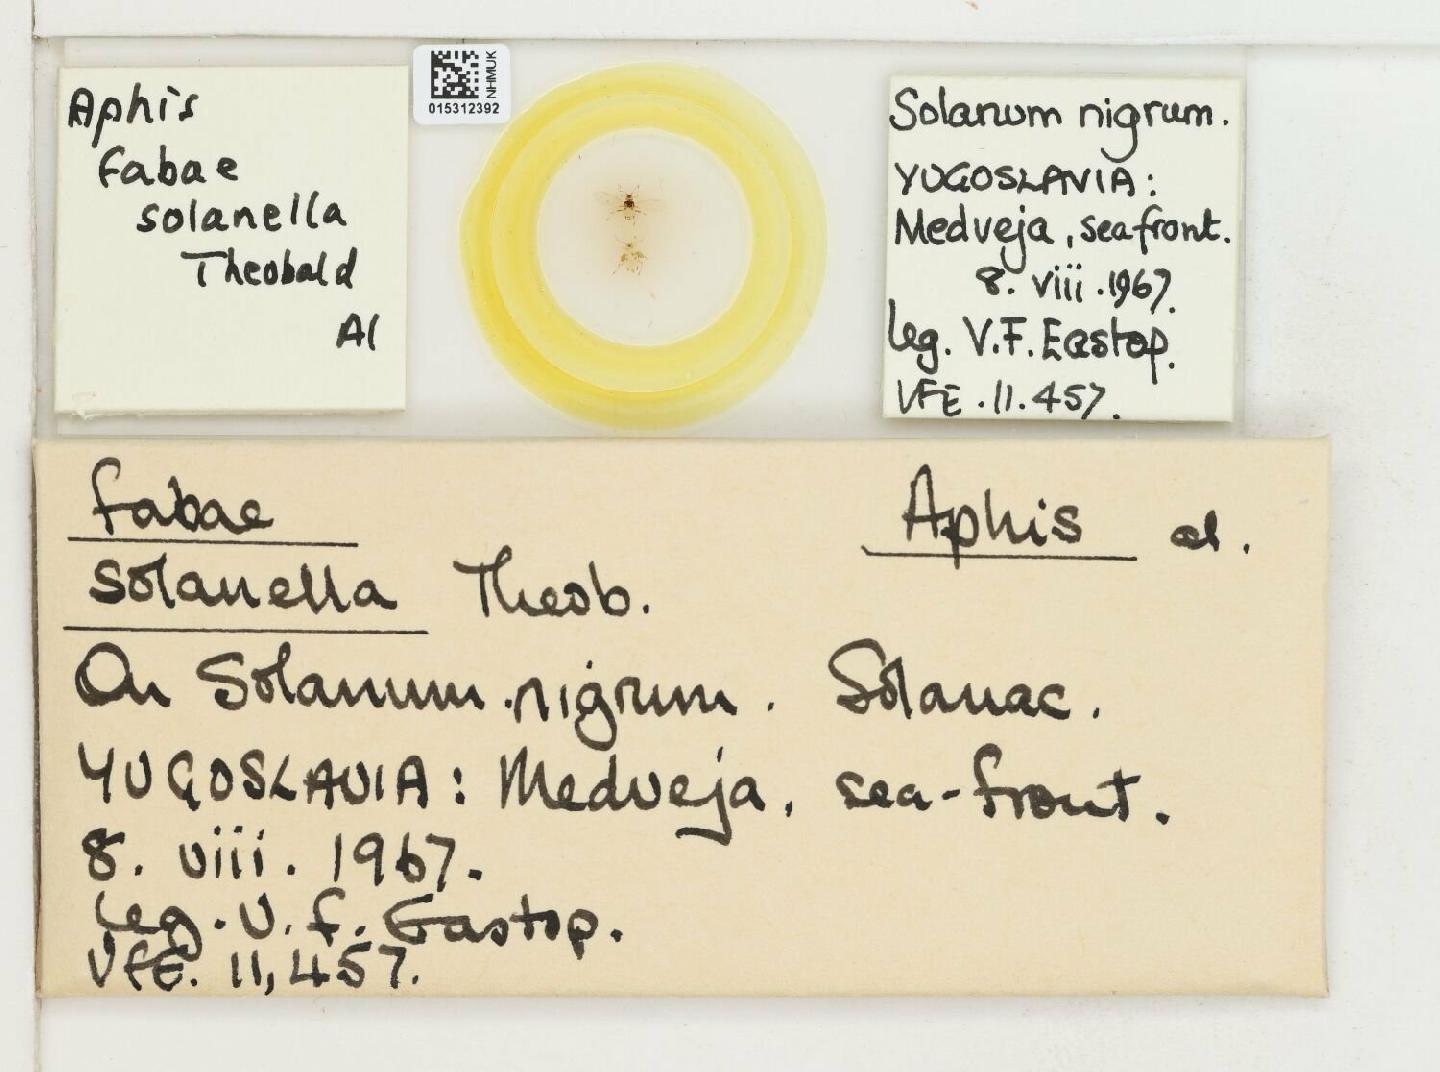 Aphis
fabae
solanella
Theobald
Al
NHMUK
015312392
Solanum nigrum.
YUGOSLAVIA:
Medveja, seafront.
8. viii. 1967.
leg. V.F. Eastop.
VFE. 11.457.
fabae
Aphis al.
solanella Theob.
On Solanum nigrum. Solanac.
YUGOSLAVIA: Medveja, sea-front.
8. viii. 1967.
leg. V. F. Eastop.
VFE. 11,457.